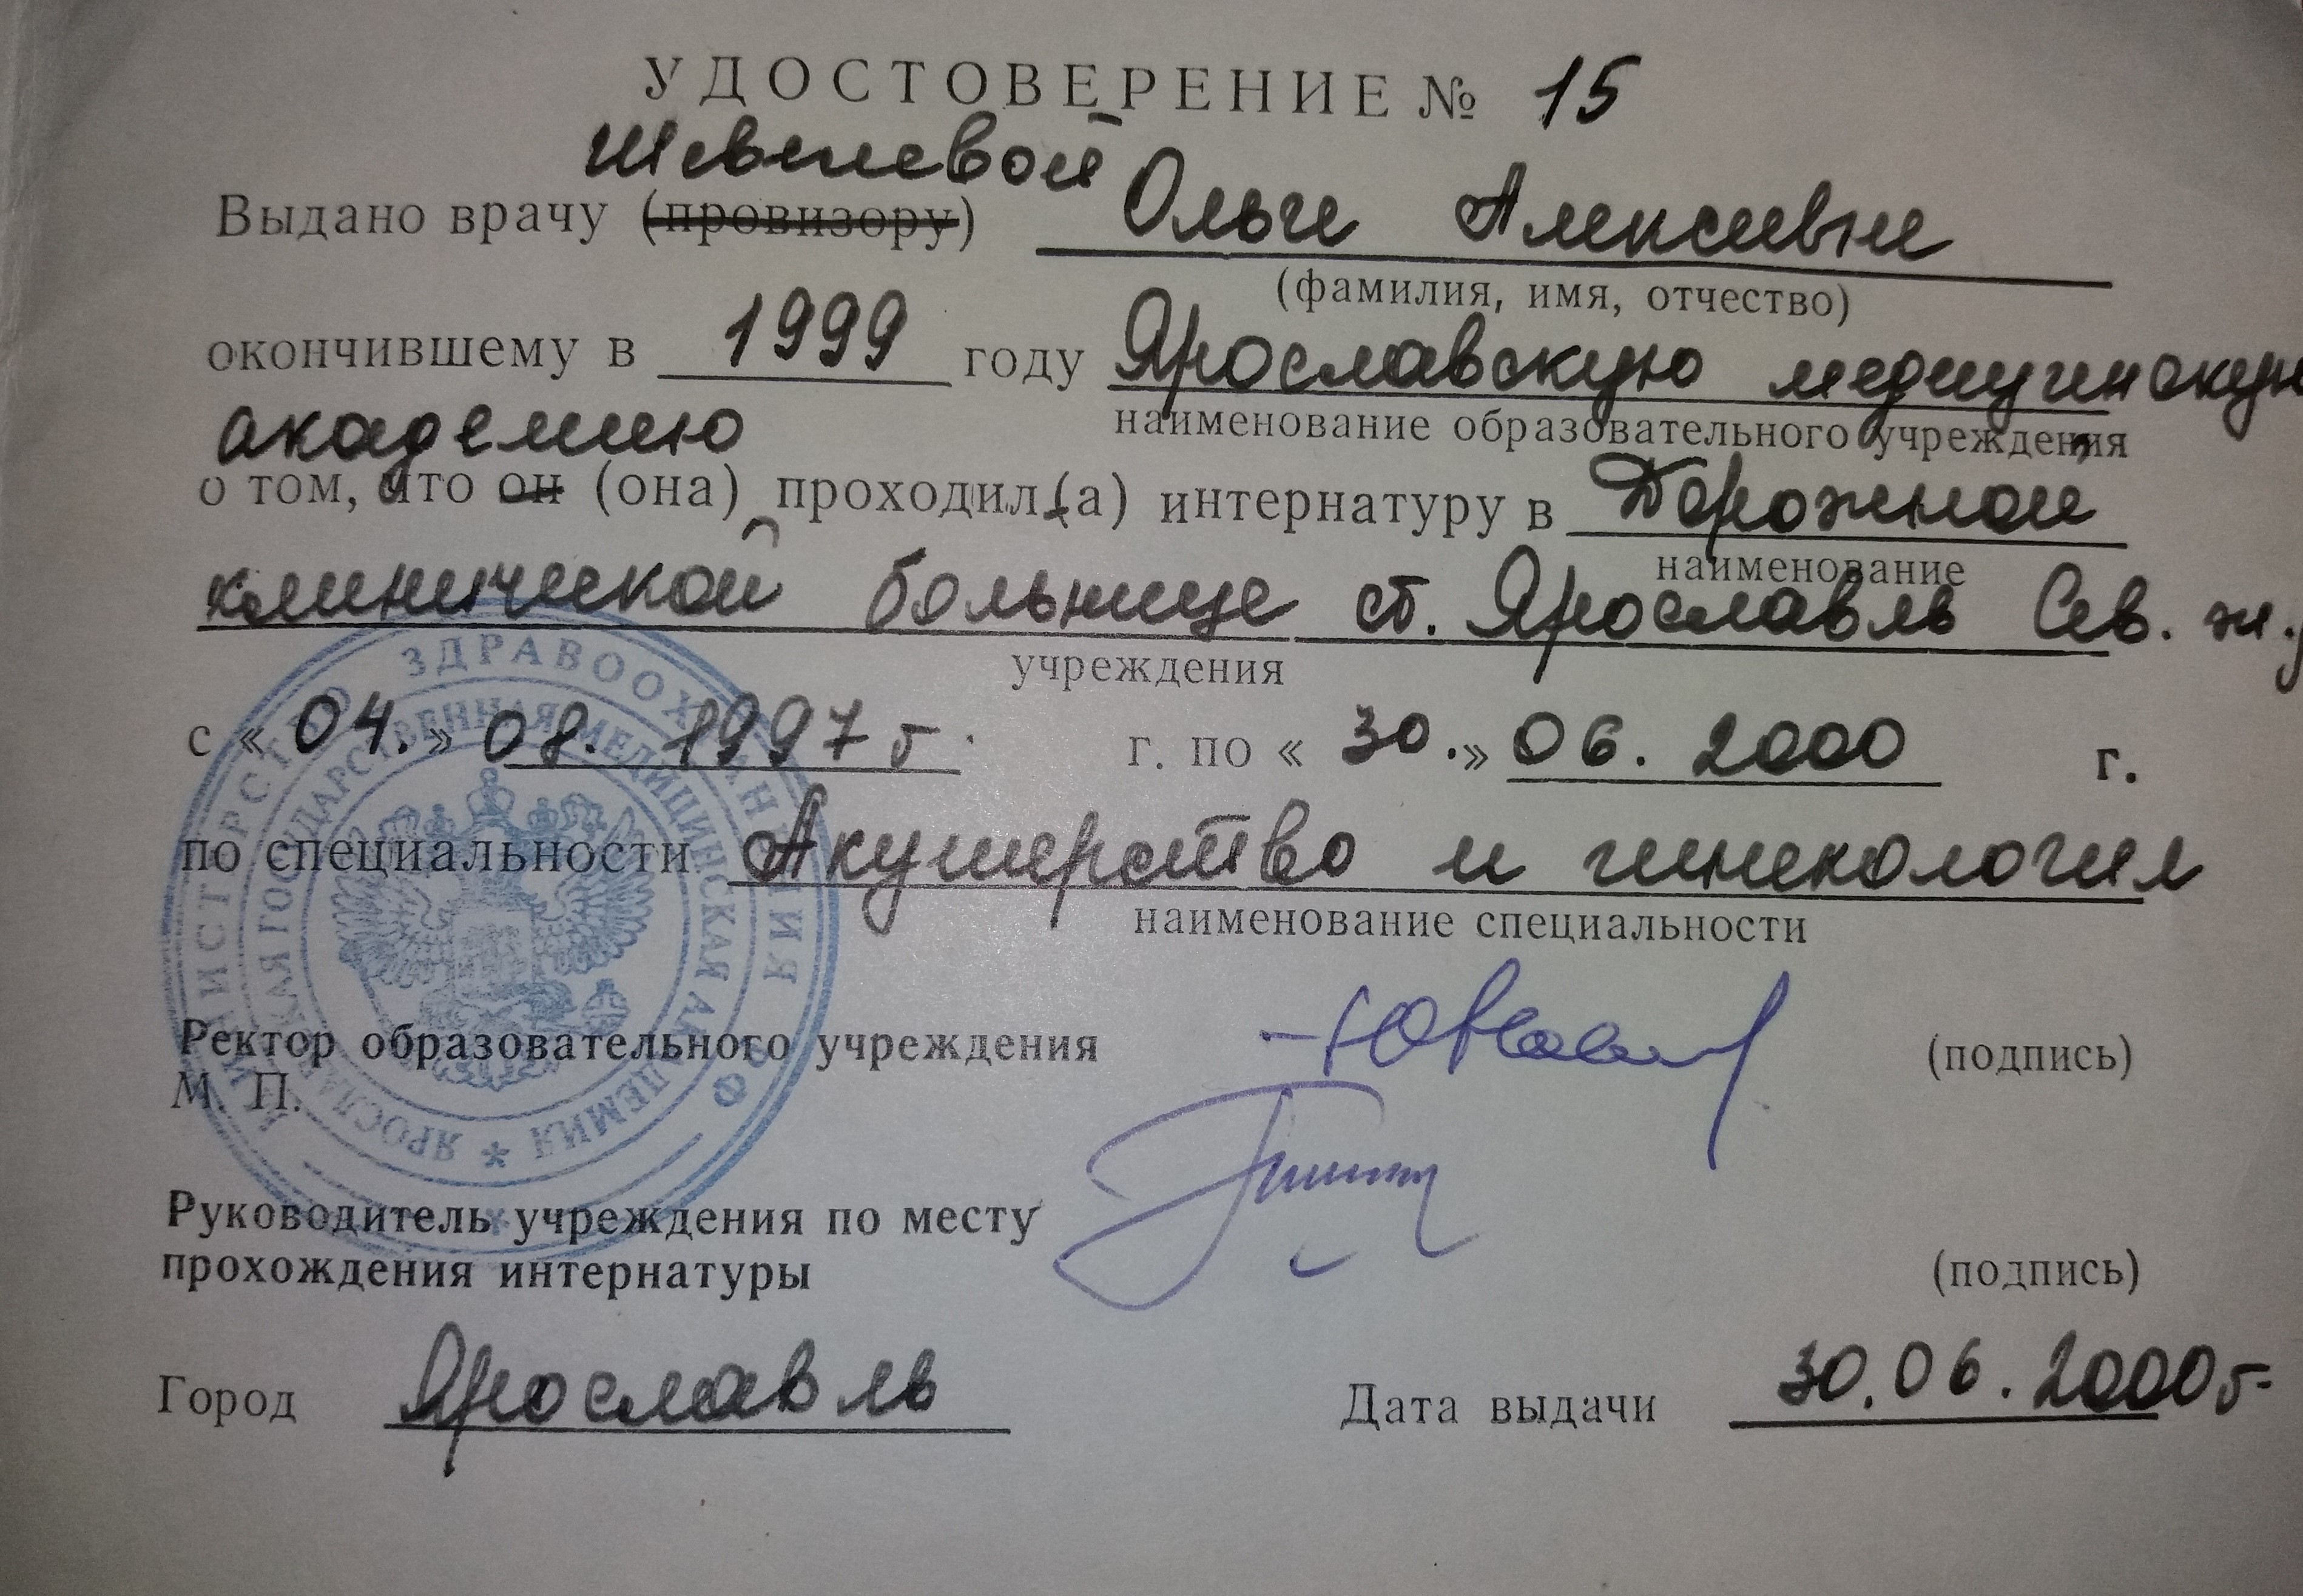 УДОСТОВЕРЕНИЕ № 15
Шевелевой
Выдано врачу (провизору) Ольге Алексеевне
(фамилия, имя, отчество)
окончившему в 1999 году Ярославскую медицинскую
наименование образовательного учреждения
академию
о том, что он (она) проходил (а) интернатуру в Дорожной
наименование
клинической больнице ст. Ярославль Сев. ж.д
учреждения
с « 04. » 08. 1997 г. г. по « 30. » 06. 2000 г.
по специальности Акушерство и гинекология
наименование специальности
МИНИСТЕРСТВО ЗДРАВООХРАНЕНИЯ РФ
ЯРОСЛАВСКАЯ ГОСУДАРСТВЕННАЯ МЕДИЦИНСКАЯ АКАДЕМИЯ
Ректор образовательного учреждения (подпись)
М. П.
Руководитель учреждения по месту
прохождения интернатуры (подпись)
Город Ярославль Дата выдачи 30.06.2000г